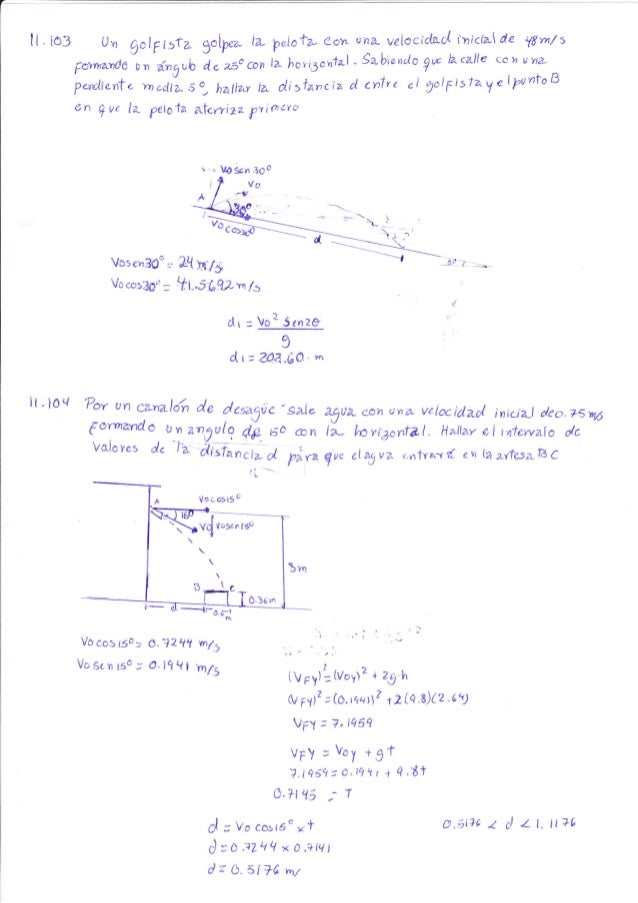 11.103 Un golfista golpea la pelota con una velocidad inicial de 48m/s
formando un ángulo de 25° con la horizontal. Sabiendo que la calle con una
pendiente media 5°, hallar la distancia d entre el golfista y el punto B
en que la pelota aterriza primero
Vosen 30°
Vo
A
30°
Vocos30°
d
5°
Vosen30° = 24 m/s
Vocos30° = 41.5692 m/s
d1 = Vo² Sen2θ
g
d1 = 203.60 m
11.104 Por un canalón de desagüe sale agua con una velocidad inicial de 0.75 m/s
formando un angulo de 15° con la horizontal. Hallar el intervalo de
valores de la distancia d para que el agua entrará en la artesa BC
A
Vocos15°
15°
Vo
Vosen15°
3m
B
C
0.36m
d
0.6m
Vocos15° = 0.7244 m/s
Vosen15° = 0.1941 m/s
(VFy)² = (Voy)² + 2g h
(VFy)² = (0.1941)² + 2(9.8)(2.64)
VFY = 7.1959
VFY = Voy + gt
7.1959 = 0.1941 + 9.8t
0.7145 = T
d = Vo cos15° x t
0.5176 < d < 1.1176
d = 0.7244 x 0.7141
d = 0.5176 m